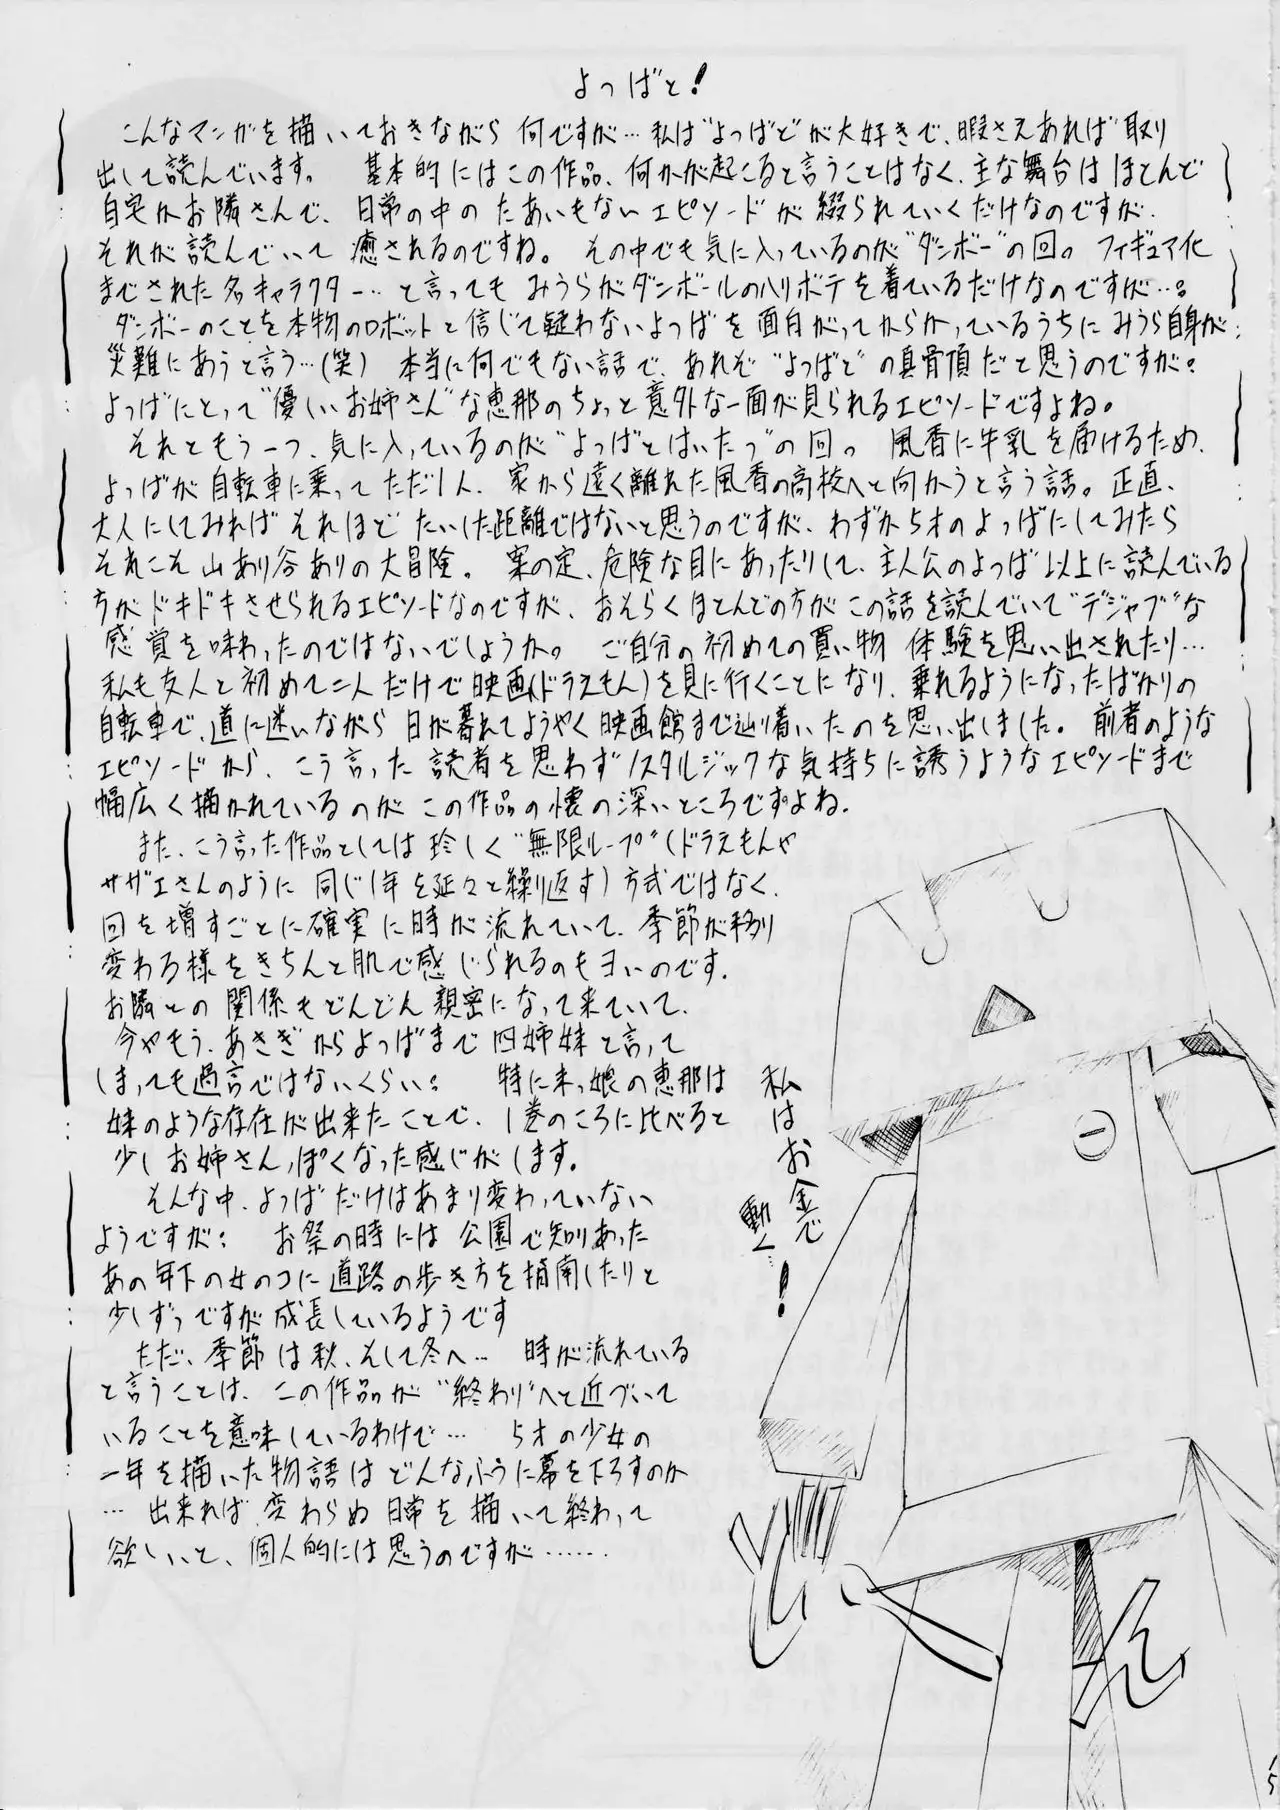 よつばと!
こんなマンガを描いておきながら何ですが…私は"よつばと"が大好きで、暇さえあれば取り
出して読んでいます。 基本的にはこの作品、何かが起こると言うことはなく、主な舞台はほとんど
自宅かお隣さんで、日常の中のたあいもないエピソードが綴られていくだけなのですが、
それが読んでいて癒されるのですね。 その中でも気に入っているのが"ダンボー"の回。フィギュア化
までされた名キャラクター…と言ってもみうらがダンボールのハリボテを着ているだけなのですが…。
ダンボーのことを本物のロボットと信じて疑わないよつばを面白がってからかっているうちにみうら自身が
災難にあうと言う…(笑) 本当に何でもない話で、あれぞ"よつばと"の真骨頂だと思うのですが。
よつばにとって"優しいお姉さん"な恵那のちょっと意外な一面が見られるエピソードですよね。
それともう一つ、気に入っているのが"よつばとはいたつ"の回。 風香に牛乳を届けるため、
よつばが自転車に乗ってただ1人、家から遠く離れた風香の高校へと向かうと言う話。正直、
大人にしてみればそれほどたいした距離ではないと思うのですが、わずか5才のよつばにしてみたら
それこそ山あり谷ありの大冒険。 案の定、危険な目にあったりして、主人公のよつば以上に読んでいる
方がドキドキさせられるエピソードなのですが、おそらくほとんどの方がこの話を読んでいて"デジャブ"な
感覚を味わったのではないでしょうか。 ご自分の初めての買い物体験を思い出されたり…
私も友人と初めて二人だけで映画(ドラえもん)を見に行くことになり、乗れるようになったばかりの
自転車で、道に迷いながら日が暮れてようやく映画館まで辿り着いたのを思い出しました。前者のような
エピソードから、こう言った読者を思わずノスタルジックな気持ちに誘うようなエピソードまで
幅広く描かれているのがこの作品の懐の深いところですよね。
また、こう言った作品としては珍しく"無限ループ"(ドラえもんや
サザエさんのように同じ1年を延々と繰り返す)方式ではなく、
回を増すごとに確実に時が流れていて、季節が移り
変わる様をきちんと肌で感じられるのもヨいのです。
お隣との関係もどんどん親密になって来ていて、
今やもう、あさぎからよつばまで四姉妹と言って
しまっても過言ではないくらい。 特に末っ娘の恵那は
妹のような存在が出来たことで、1巻のころに比べると
少しお姉さんっぽくなった感じがします。
そんな中、よつばだけはあまり変わっていない
ようですが。 お祭の時には公園で知りあった
あの年下の女のコに道路の歩き方を指南したりと
少しずつですが成長しているようです
ただ、季節は秋、そして冬へ… 時が流れている
と言うことは、この作品が"終わり"へと近づいて
いることを意味しているわけで… 5才の少女の
一年を描いた物語はどんなふうに幕を下ろすのか
…出来れば、変わらぬ日常を描いて終わって
欲しいと、個人的には思うのですが……
私はお金で
動く…!
15